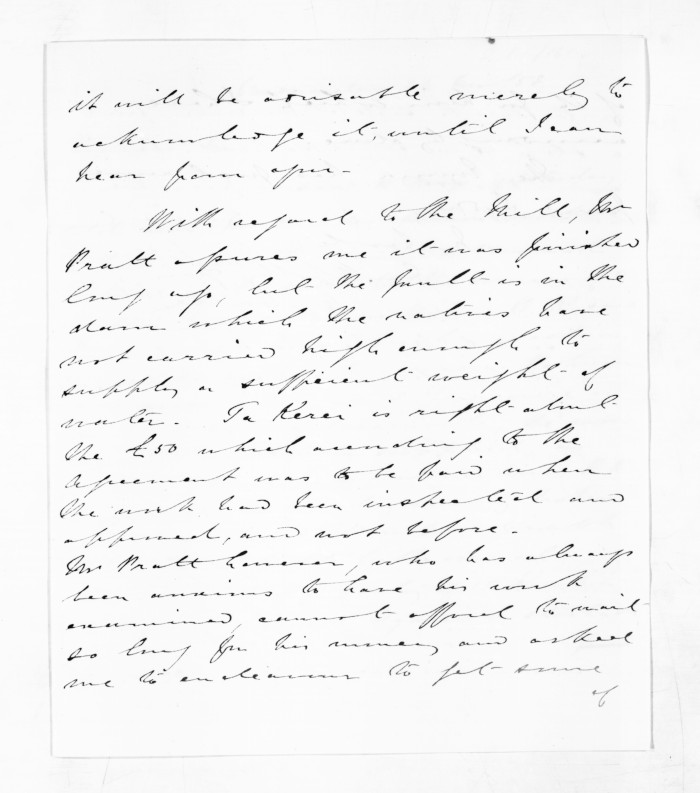 it will be advisable merely to
acknowledge it, until I can
hear from you.
With regard to the Mill, Mr
Pratt assures me it was finished
long ago, but the fault is in the
dam which the natives have
not carried high enough to
supply a sufficient weight of
water. Ta Kerei is right about
the £50 which according to the
agreement was to be paid when
the work had been inspected and
approved, and not before.
Mr Pratt however, who has always
been anxious to have his work
examined, cannot afford to wait
so long for his money and asked
me to endeavour to get some
of